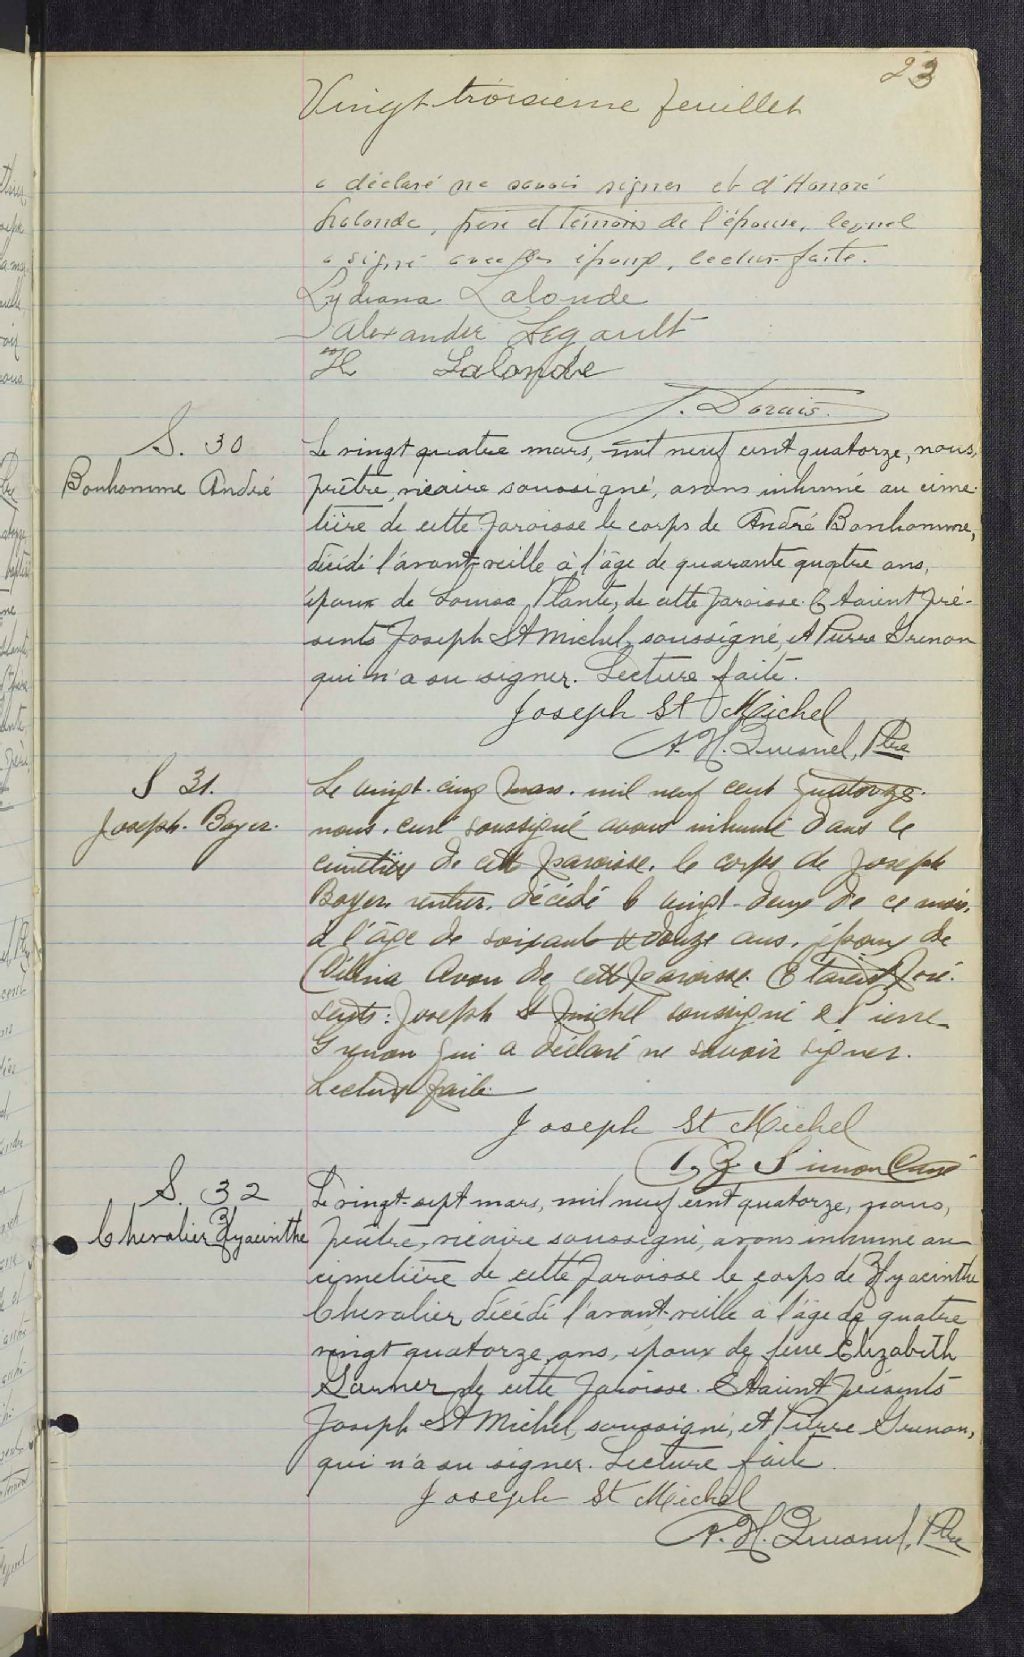 23
Vingt troisieme feuillet
a déclaré ne savoir signer et d'Honoré
Lalonde, père et témoin de l'épouse, lequel
a signé avec les époux, lecture faite.
Lydiana Lalonde
Alexander Legault
H Lalonde
J. Dorais.
S. 30
Bonhomme André
Le vingt quatre mars, mil neuf cent quatorze, nous,
prêtre, vicaire soussigné, avons inhumé au cime-
tière de cette paroisse le corps de André Bonhomme,
décédé l'avant-veille à l'âge de quarante quatre ans,
époux de Louisa Plante, de cette paroisse. Etaient pré-
sents Joseph St Michel, soussigné, et Pierre Grenon
qui n'a su signer. Lecture faite.
Joseph St Michel
A. H. Quesnel, Ptre
S 31.
Joseph. Boyer.
Le vingt-cinq mars. mil neuf cent quatorze.
nous, curé soussigné avons inhumé dans le
cimetière de cette paroisse. le corps de Joseph
Boyer rentier. décédé le vingt-deux de ce mois.
à l'âge de soixante & douze ans. époux de
Avon de cette paroisse. Etaient pré-
sents: Joseph St Michel soussigné & Pierre
Grenon qui a déclaré ne savoir signer.
Lecture faite.
Joseph St Michel
Simon Curé
S. 32
Chevalier Hyacinthe
Le vingt-sept mars, mil neuf cent quatorze, nous,
prêtre, vicaire soussigné, avons inhumé au
cimetière de cette paroisse le corps de Hyacinthe
Chevalier, décédé l'avant-veille à l'âge de quatre
vingt quatorze ans, époux de feue Elizabeth
de cette paroisse. Etaient présents
Joseph St Michel, soussigné, et Pierre Grenon,
qui n'a su signer. Lecture faite.
Joseph St Michel
A. H. Quesnel, Ptre